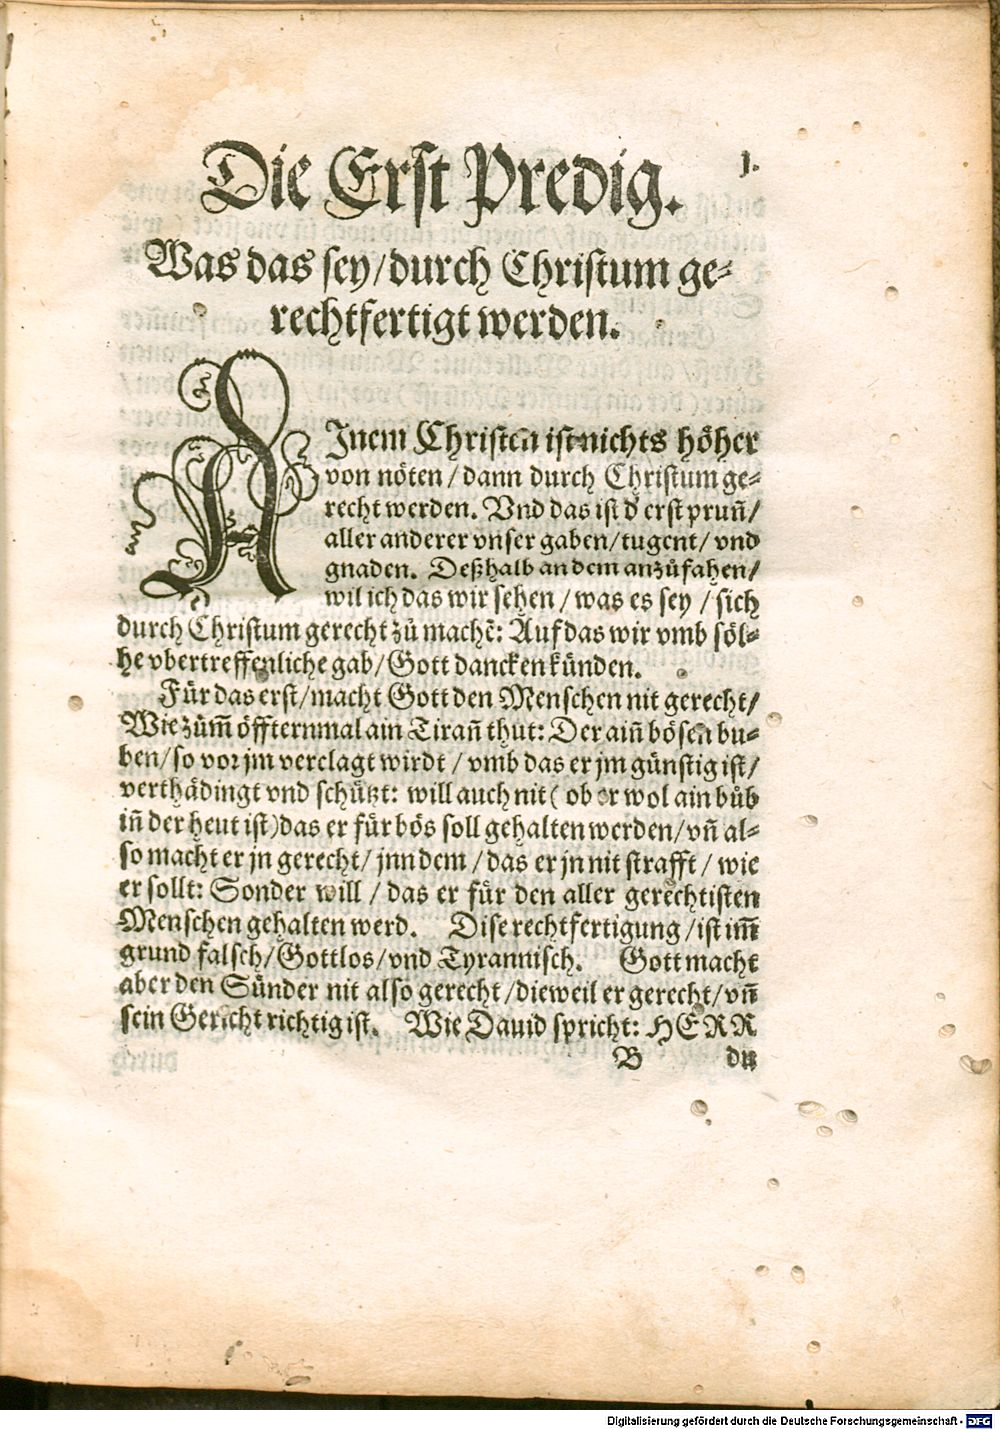 1.
Die Erst Predig.
Was das sey/durch Christum ge⸗
rechtfertigt werden.
AInem Christen ist nichts höher
von nöten/dann durch Christum ge⸗
recht werden. Vnd das ist d̕ erst prun̄/
aller anderer vnser gaben/tugent/vnd
gnaden. Deßhalb an dem anzůfahen/
wil ich das wir sehen/was es sey/sich
durch Christum gerecht zů machē: Auf das wir vmb söl⸗
he vbertreffenliche gab/Gott dancken künden.
Für das erst/macht Gott den Menschen nit gerecht/
Wie zům̄ öffternmal ain Tiran̄ thut: Der ain̄ bösen bu⸗
ben/so vor jm verclagt wirdt/vmb das er jm günstig ist/
verthädingt vnd schützt: will auch nit(ob er wol ain bůb
in̄ der heut ist)das er für bös soll gehalten werden/vn̄ al⸗
so macht er jn gerecht/jnn dem/das er jn nit strafft/wie
er sollt: Sonder will/das er für den aller gerechtisten
Menschen gehalten werd. Dise rechtfertigung/ist im̄
grund falsch/Gottlos/vnd Tyrannisch. Gott macht
aber den Sünder nit also gerecht/dieweil er gerecht/vn̄
sein Gericht richtig ist. Wie Dauid spricht: HERR
B du
Digitalisierung gefördert durch die Deutsche Forschungsgemeinschaft - DFG